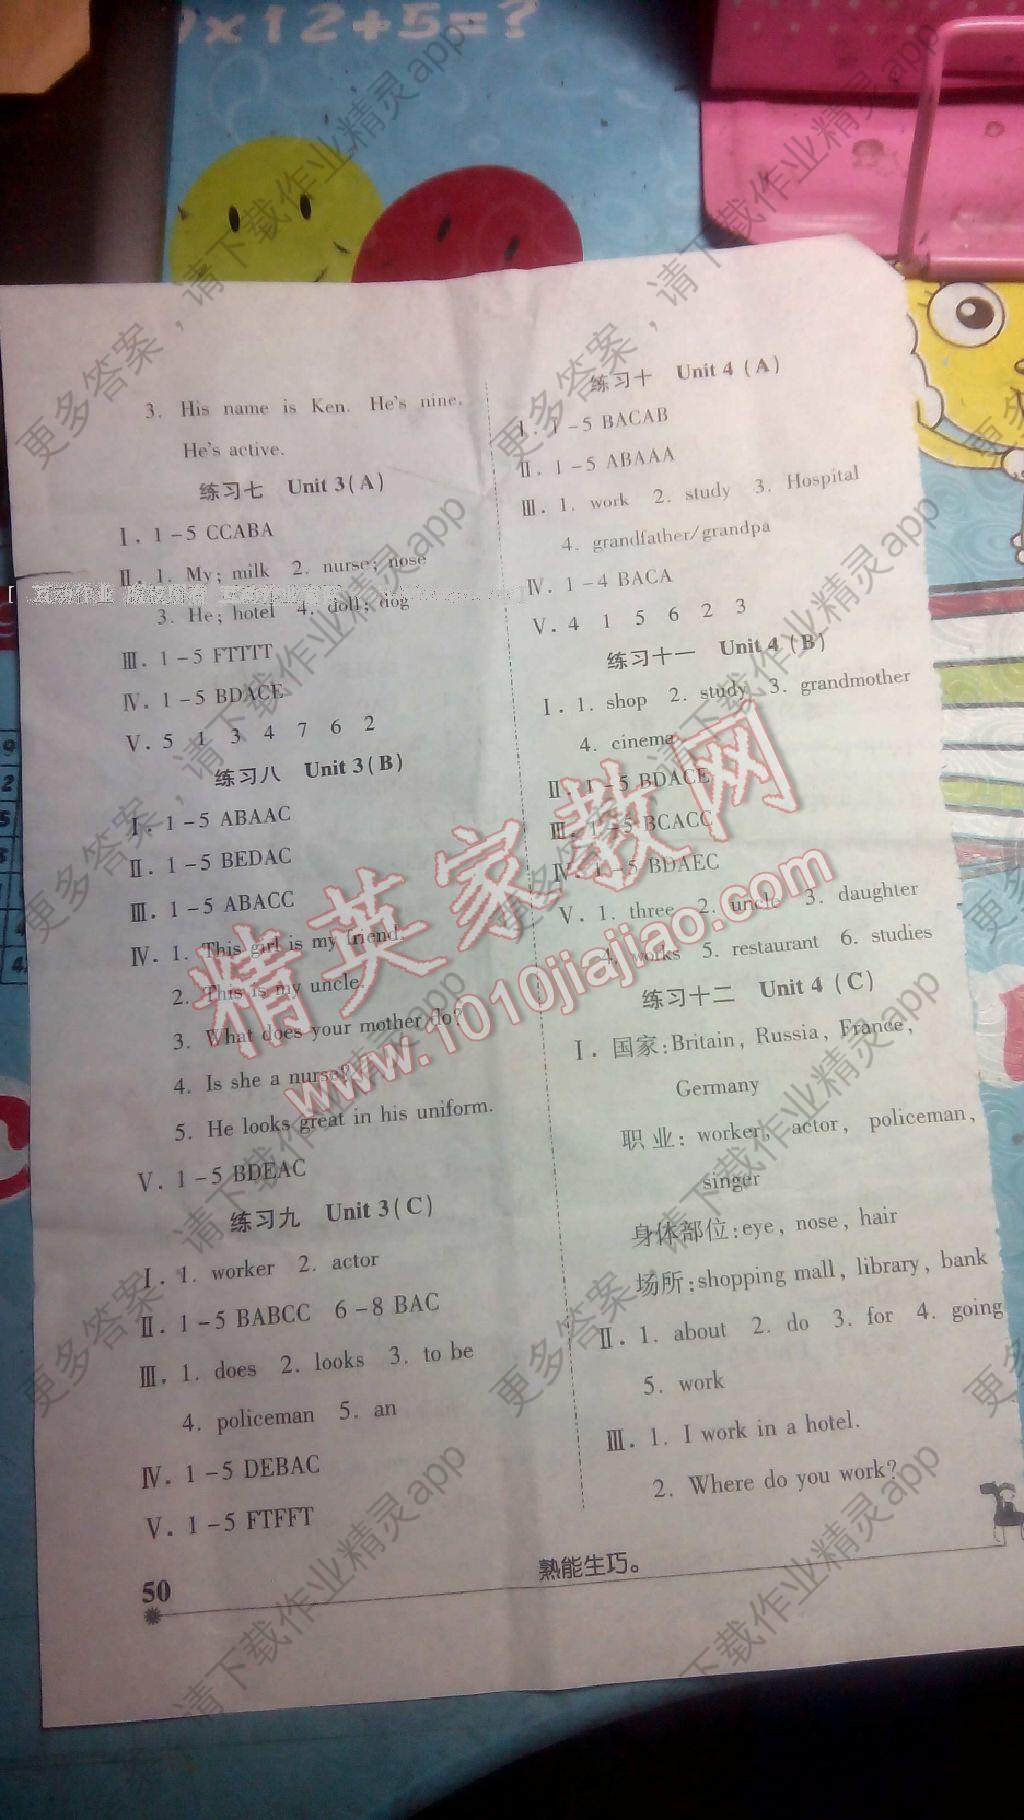 ×12+5=?
3. His name is Ken. He's nine.
He's active.
练习七 Unit 3(A)
Ⅰ. 1-5 CCABA
Ⅱ. 1. My; milk 2. nurse; nose
3. He; hotel 4. doll; dog
Ⅲ. 1-5 FTTTT
Ⅳ. 1-5 BDACE
Ⅴ. 5 1 3 4 7 6 2
练习八 Unit 3(B)
Ⅰ. 1-5 ABAAC
Ⅱ. 1-5 BEDAC
Ⅲ. 1-5 ABACC
Ⅳ. 1. This girl is my friend.
2. This is my uncle.
3. What does your mother do?
4. Is she a nurse?
5. He looks great in his uniform.
Ⅴ. 1-5 BDEAC
练习九 Unit 3(C)
Ⅰ. 1. worker 2. actor
Ⅱ. 1-5 BABCC 6-8 BAC
Ⅲ. 1. does 2. looks 3. to be
4. policeman 5. an
Ⅳ. 1-5 DEBAC
Ⅴ. 1-5 FTFFT
练习十 Unit 4 (A)
Ⅰ. 1-5 BACAB
Ⅱ. 1-5 ABAAA
Ⅲ. 1. work 2. study 3. Hospital
4. grandfather/grandpa
Ⅳ. 1-4 BACA
Ⅴ. 4 1 5 6 2 3
练习十一 Unit 4 (B)
Ⅰ. 1. shop 2. study 3. grandmother
4. cinema
Ⅱ. 1-5 BDACE
Ⅲ. 1-5 BCACC
Ⅳ. 1-5 BDAEC
Ⅴ. 1. three 2. uncle 3. daughter
4. works 5. restaurant 6. studies
练习十二 Unit 4 (C)
Ⅰ. 国家: Britain, Russia, France,
Germany
职业: worker, actor, policeman,
singer
身体部位: eye, nose, hair
场所: shopping mall, library, bank
Ⅱ. 1. about 2. do 3. for 4. going
5. work
Ⅲ. 1. I work in a hotel.
2. Where do you work?
熟能生巧。
50
精英家教网
www.1010jiajiao.com
更多答案，请下载作业精灵app